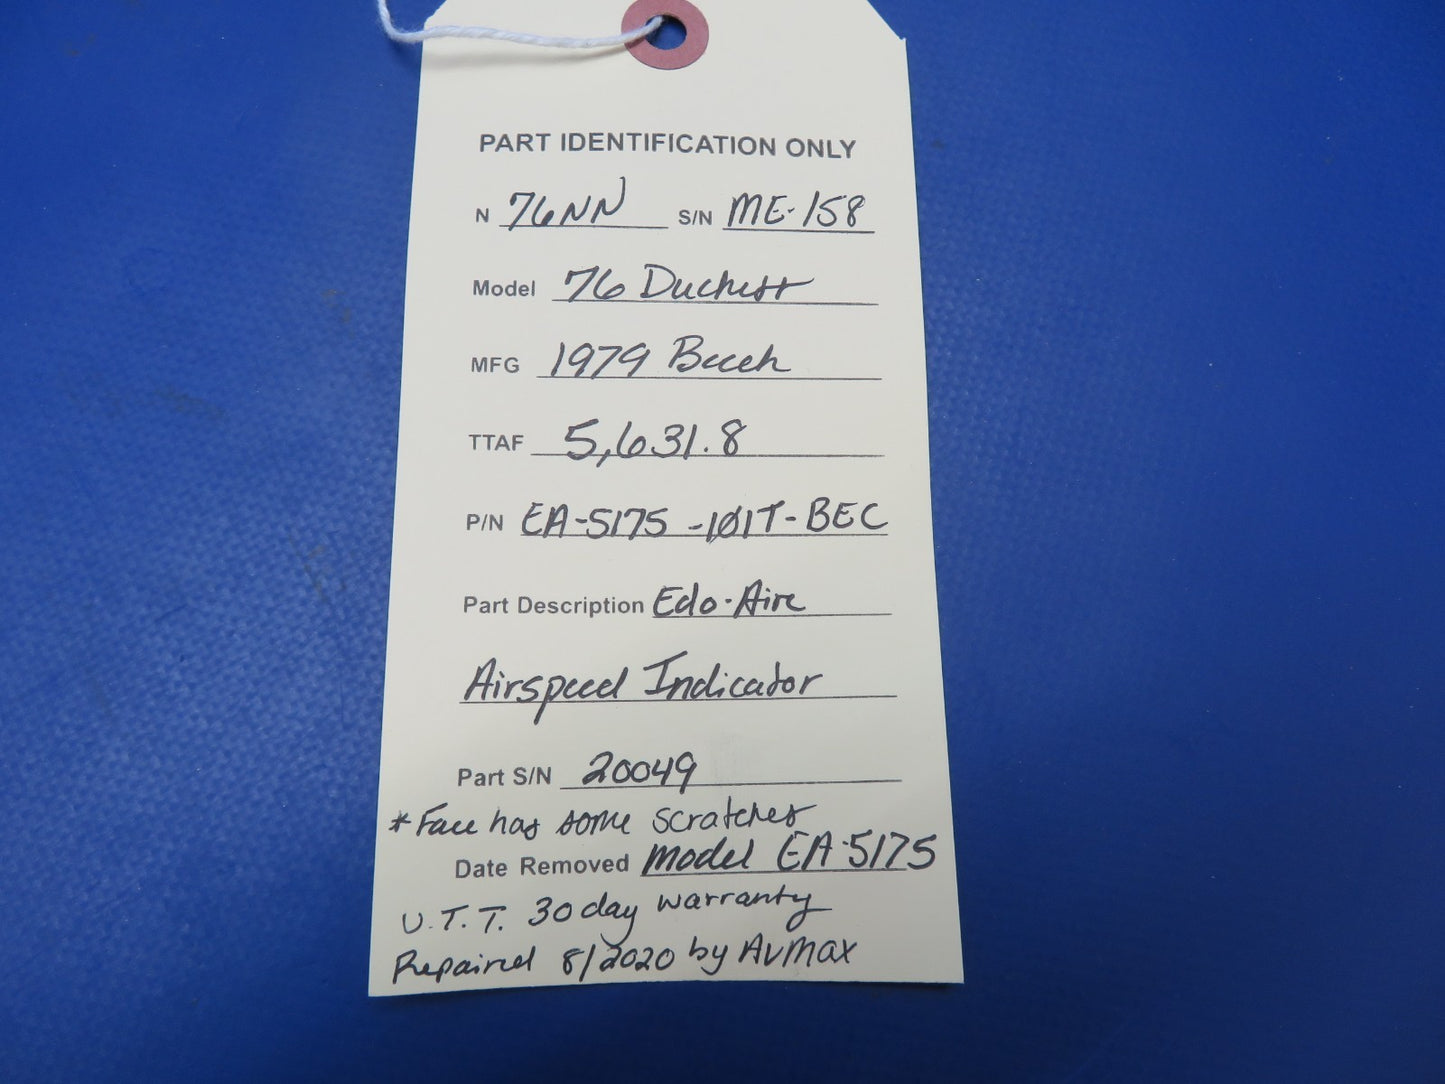 PART IDENTIFICATION ONLY
N 76NN S/N ME-158
Model 76 Duchess
MFG 1979 Beech
TTAF 5,631.8
P/N EA-5175 -101T-BEC
Part Description Edo-Aire
Airspeed Indicator
Part S/N 20049
*Face has some scratches
Date Removed Model EA-5175
U.T.T. 30 day warranty
Repaired 8/2020 by AvMax